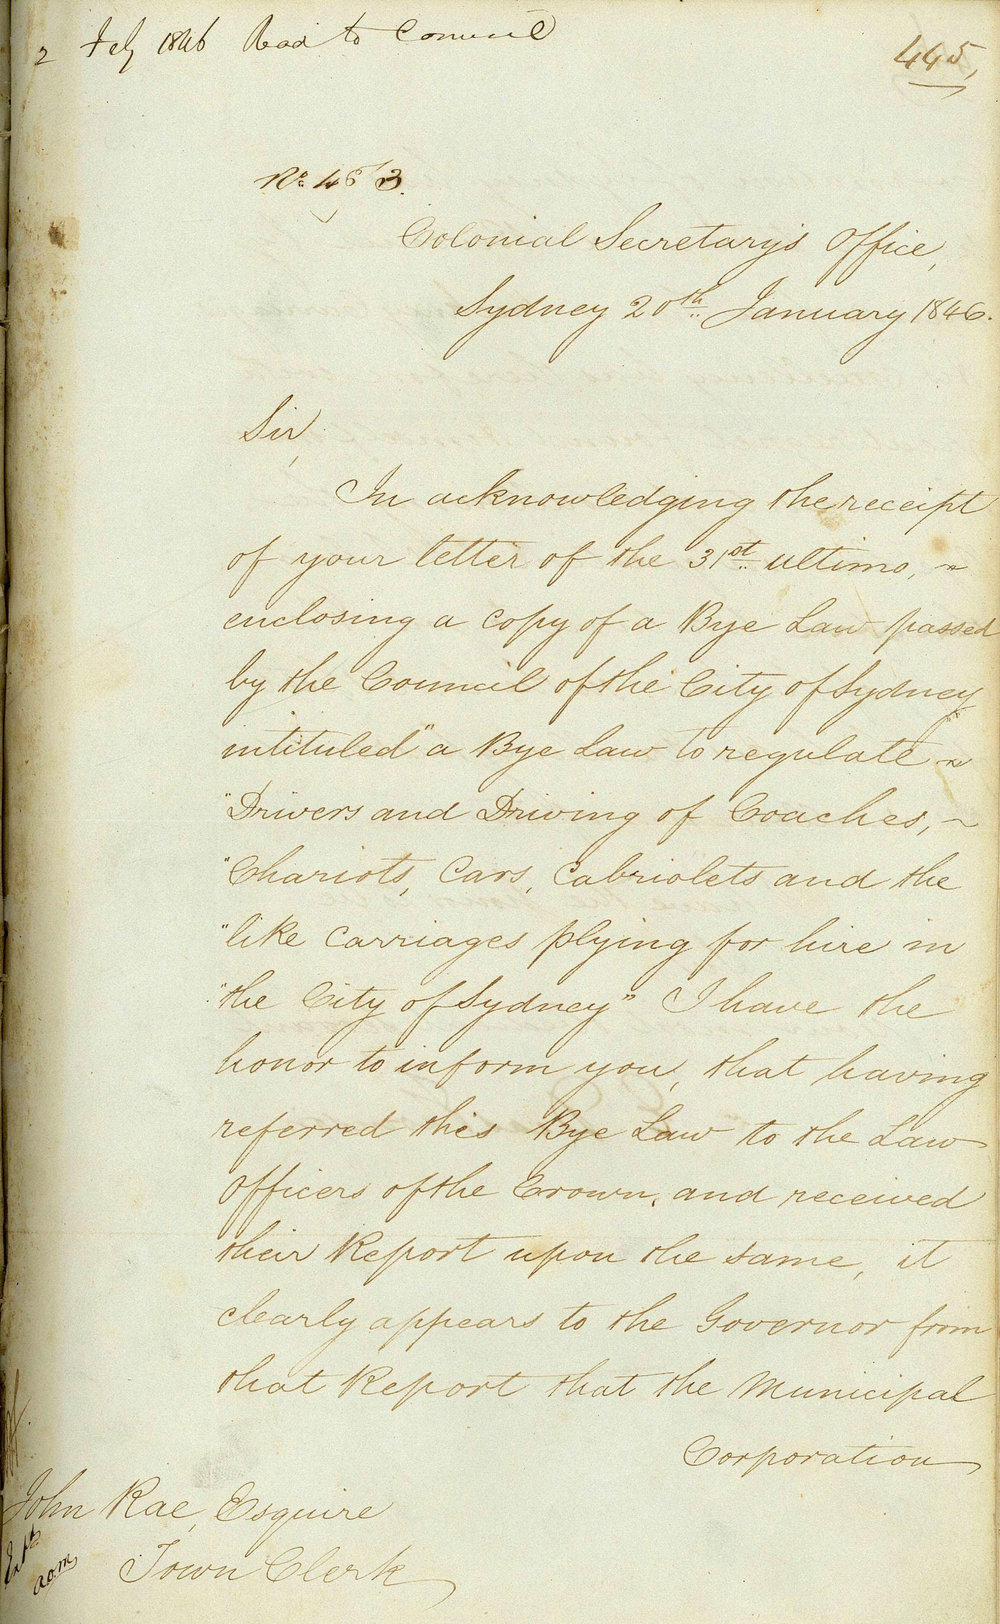 2 Feby 1846 Read to Council
445,
No. 46/3.
Colonial Secretary's Office,
Sydney 20th January 1846.
Sir,
In acknowledging the receipt
of your letter of the 31st ultimo, ~
enclosing a copy of a Bye Law passed
by the Council of the City of Sydney,
intituled "a Bye Law to regulate ~
"Drivers and Driving of Coaches, ~
"Chariots, Cars, Cabriolets and the
"like Carriages plying for hire in
"the City of Sydney" I have the
honor to inform you, that having
referred this Bye Law to the Law
Officers of the Crown, and received
their Report upon the same, it
clearly appears to the Governor from
that Report that the Municipal
Corporation
John Rae, Esquire
Town Clerk